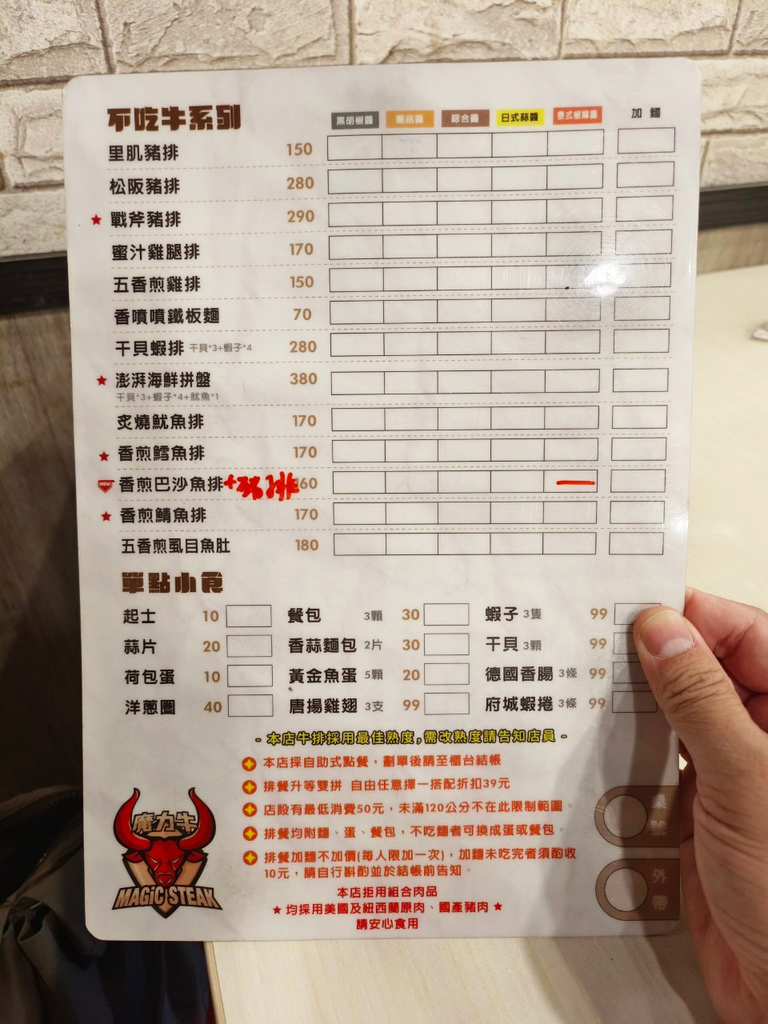 不吃牛系列 黑胡椒醬 綜合醬 日式蒜醬 泰式椒麻醬 加麵
里肌豬排 150
松阪豬排 280
戰斧豬排 290
蜜汁雞腿排 170
五香煎雞排 150
香噴噴鐵板麵 70
干貝蝦排 干貝*3+蝦子*4 280
澎湃海鮮拼盤 380
干貝*3+蝦子*4+魷魚*1
炙燒魷魚排 170
香煎鱈魚排 170
NEW 香煎巴沙魚排+豬排 160
香煎鯖魚排 170
五香煎虱目魚肚 180
單點小食
起士 10 餐包 3顆 30 蝦子 3隻 99
蒜片 20 香蒜麵包 2片 30 干貝 3顆 99
荷包蛋 10 黃金魚蛋 5顆 20 德國香腸 3條 99
洋蔥圈 40 唐揚雞翅 3支 99 府城蝦捲 3條 99
- 本店牛排採用最佳熟度,需改熟度請告知店員 -
本店採自助式點餐，劃單後請至櫃台結帳
排餐升等雙拼 自由任意擇一搭配折扣39元
店設有最低消費50元，未滿120公分不在此限制範圍。
排餐均附麵、蛋、餐包，不吃麵者可換成蛋或餐包。
排餐加麵不加價(每人限加一次)，加麵未吃完者須酌收
10元，請自行斟酌並於結帳前告知。
本店拒用組合肉品
★ 均採用美國及紐西蘭原肉、國產豬肉 ★
請安心食用
魔力牛
MAGIC STEAK
桌號
外帶